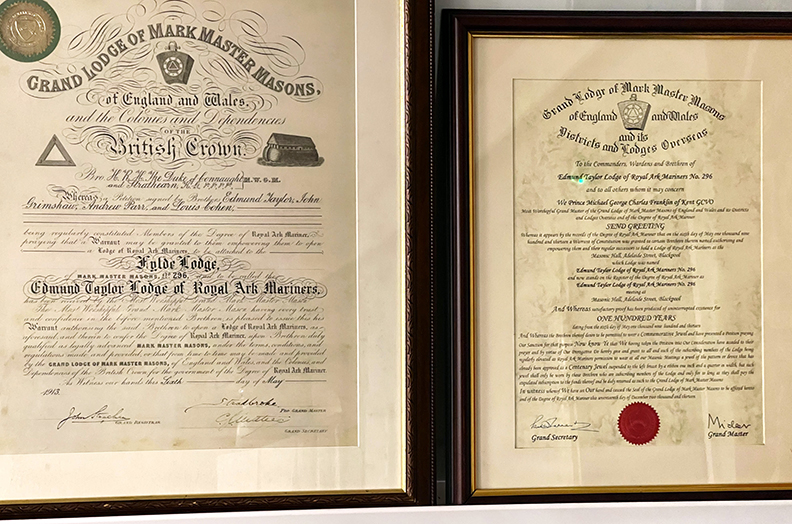 GRAND LODGE OF MARK MASTER MASONS,
of England and Wales,
and the Colonies and Dependencies
OF THE
British Crown
Bro. H.R.H. The Duke of Connaught M.W.G.M.
and Strathearn, K.G.
Whereas a Petition signed by Brothers Edmund Taylor, John
Grimshaw, Andrew Parr, and Louis Cohen,
being regularly constituted Members of the Degree of Royal Ark Mariner,
praying that a Warrant may be granted to them empowering them to open
a Lodge of Royal Ark Mariners, to be attached to the
Fylde Lodge,
of MARK MASTER MASONS, No 296, and to be called the
Edmund Taylor Lodge of Royal Ark Mariners,
has been received by the Most Worshipful Grand Mark Master Mason
The Most Worshipful Grand Mark Master Mason having every trust
and confidence in the before mentioned Brethren is pleased to issue this his
Warrant authorising the said Brethren to open a Lodge of Royal Ark Mariners, as
aforesaid, and therein to confer the Degree of Royal Ark Mariner, upon Brethren duly
qualified as legally advanced MARK MASTER MASONS, under the terms, conditions, and
regulations made and provided, or that from time to time may be made and provided
by the GRAND LODGE OF MARK MASTER MASONS, of England and Wales, and the Colonies and
Dependencies of the British Crown for the government of the Degree of Royal Ark Mariner.
As Witness our hands this Sixth day of May
1913.
PRO GRAND MASTER
GRAND REGISTRAR
GRAND SECRETARY
Grand Lodge of Mark Master Masons
of England and Wales
and its
Districts and Lodges Overseas
To the Commanders, Wardens and Brethren of
Edmund Taylor Lodge of Royal Ark Mariners No. 296
and to all others whom it may concern
We Prince Michael George Charles Franklin of Kent GCVO
Most Worshipful Grand Master of the Grand Lodge of Mark Master Masons of England and Wales and its Districts
and Lodges Overseas and of the Degree of Royal Ark Mariner
SEND GREETING
Whereas it appears by the records of the Degree of Royal Ark Mariner that on the sixth day of May one thousand nine
hundred and thirteen a Warrant of Constitution was granted to certain Brethren therein named authorising and
empowering them and their regular successors to hold a Lodge of Royal Ark Mariners at the
Masonic Hall, Adelaide Street, Blackpool
which Lodge was named
Edmund Taylor Lodge of Royal Ark Mariners No. 296
and now stands on the Register of the Degree of Royal Ark Mariner as
Edmund Taylor Lodge of Royal Ark Mariners No. 296
meeting at
Masonic Hall, Adelaide Street, Blackpool
And Whereas satisfactory proof has been produced of uninterrupted existence for
ONE HUNDRED YEARS
dating from the sixth day of May one thousand nine hundred and thirteen
And Whereas the Brethren thereof desire to be permitted to wear a Commemorative Jewel and have presented a Petition praying
Our Sanction for that purpose Now know Ye that We having taken the Petition into Our Consideration have acceded to their
prayer and by virtue of Our Prerogative do hereby give and grant to all and each of the subscribing members of the Lodge being
regularly elevated as Royal Ark Mariners permission to wear at all our Masonic Meetings a jewel of the pattern or device that has
already been approved as a Centenary Jewel suspended to the left breast by a ribbon one inch and a quarter in width, but such
jewel shall only be worn by those Brethren who are subscribing members of the Lodge and only for so long as they shall pay the
stipulated subscription to the funds thereof and be duly returned as such to the Grand Lodge of Mark Master Masons
In witness whereof We have set Our hand and caused the Seal of the Grand Lodge of Mark Master Masons to be affixed hereto
and of the Degree of Royal Ark Mariner this seventeenth day of December two thousand and thirteen.
Grand Secretary
Grand Master